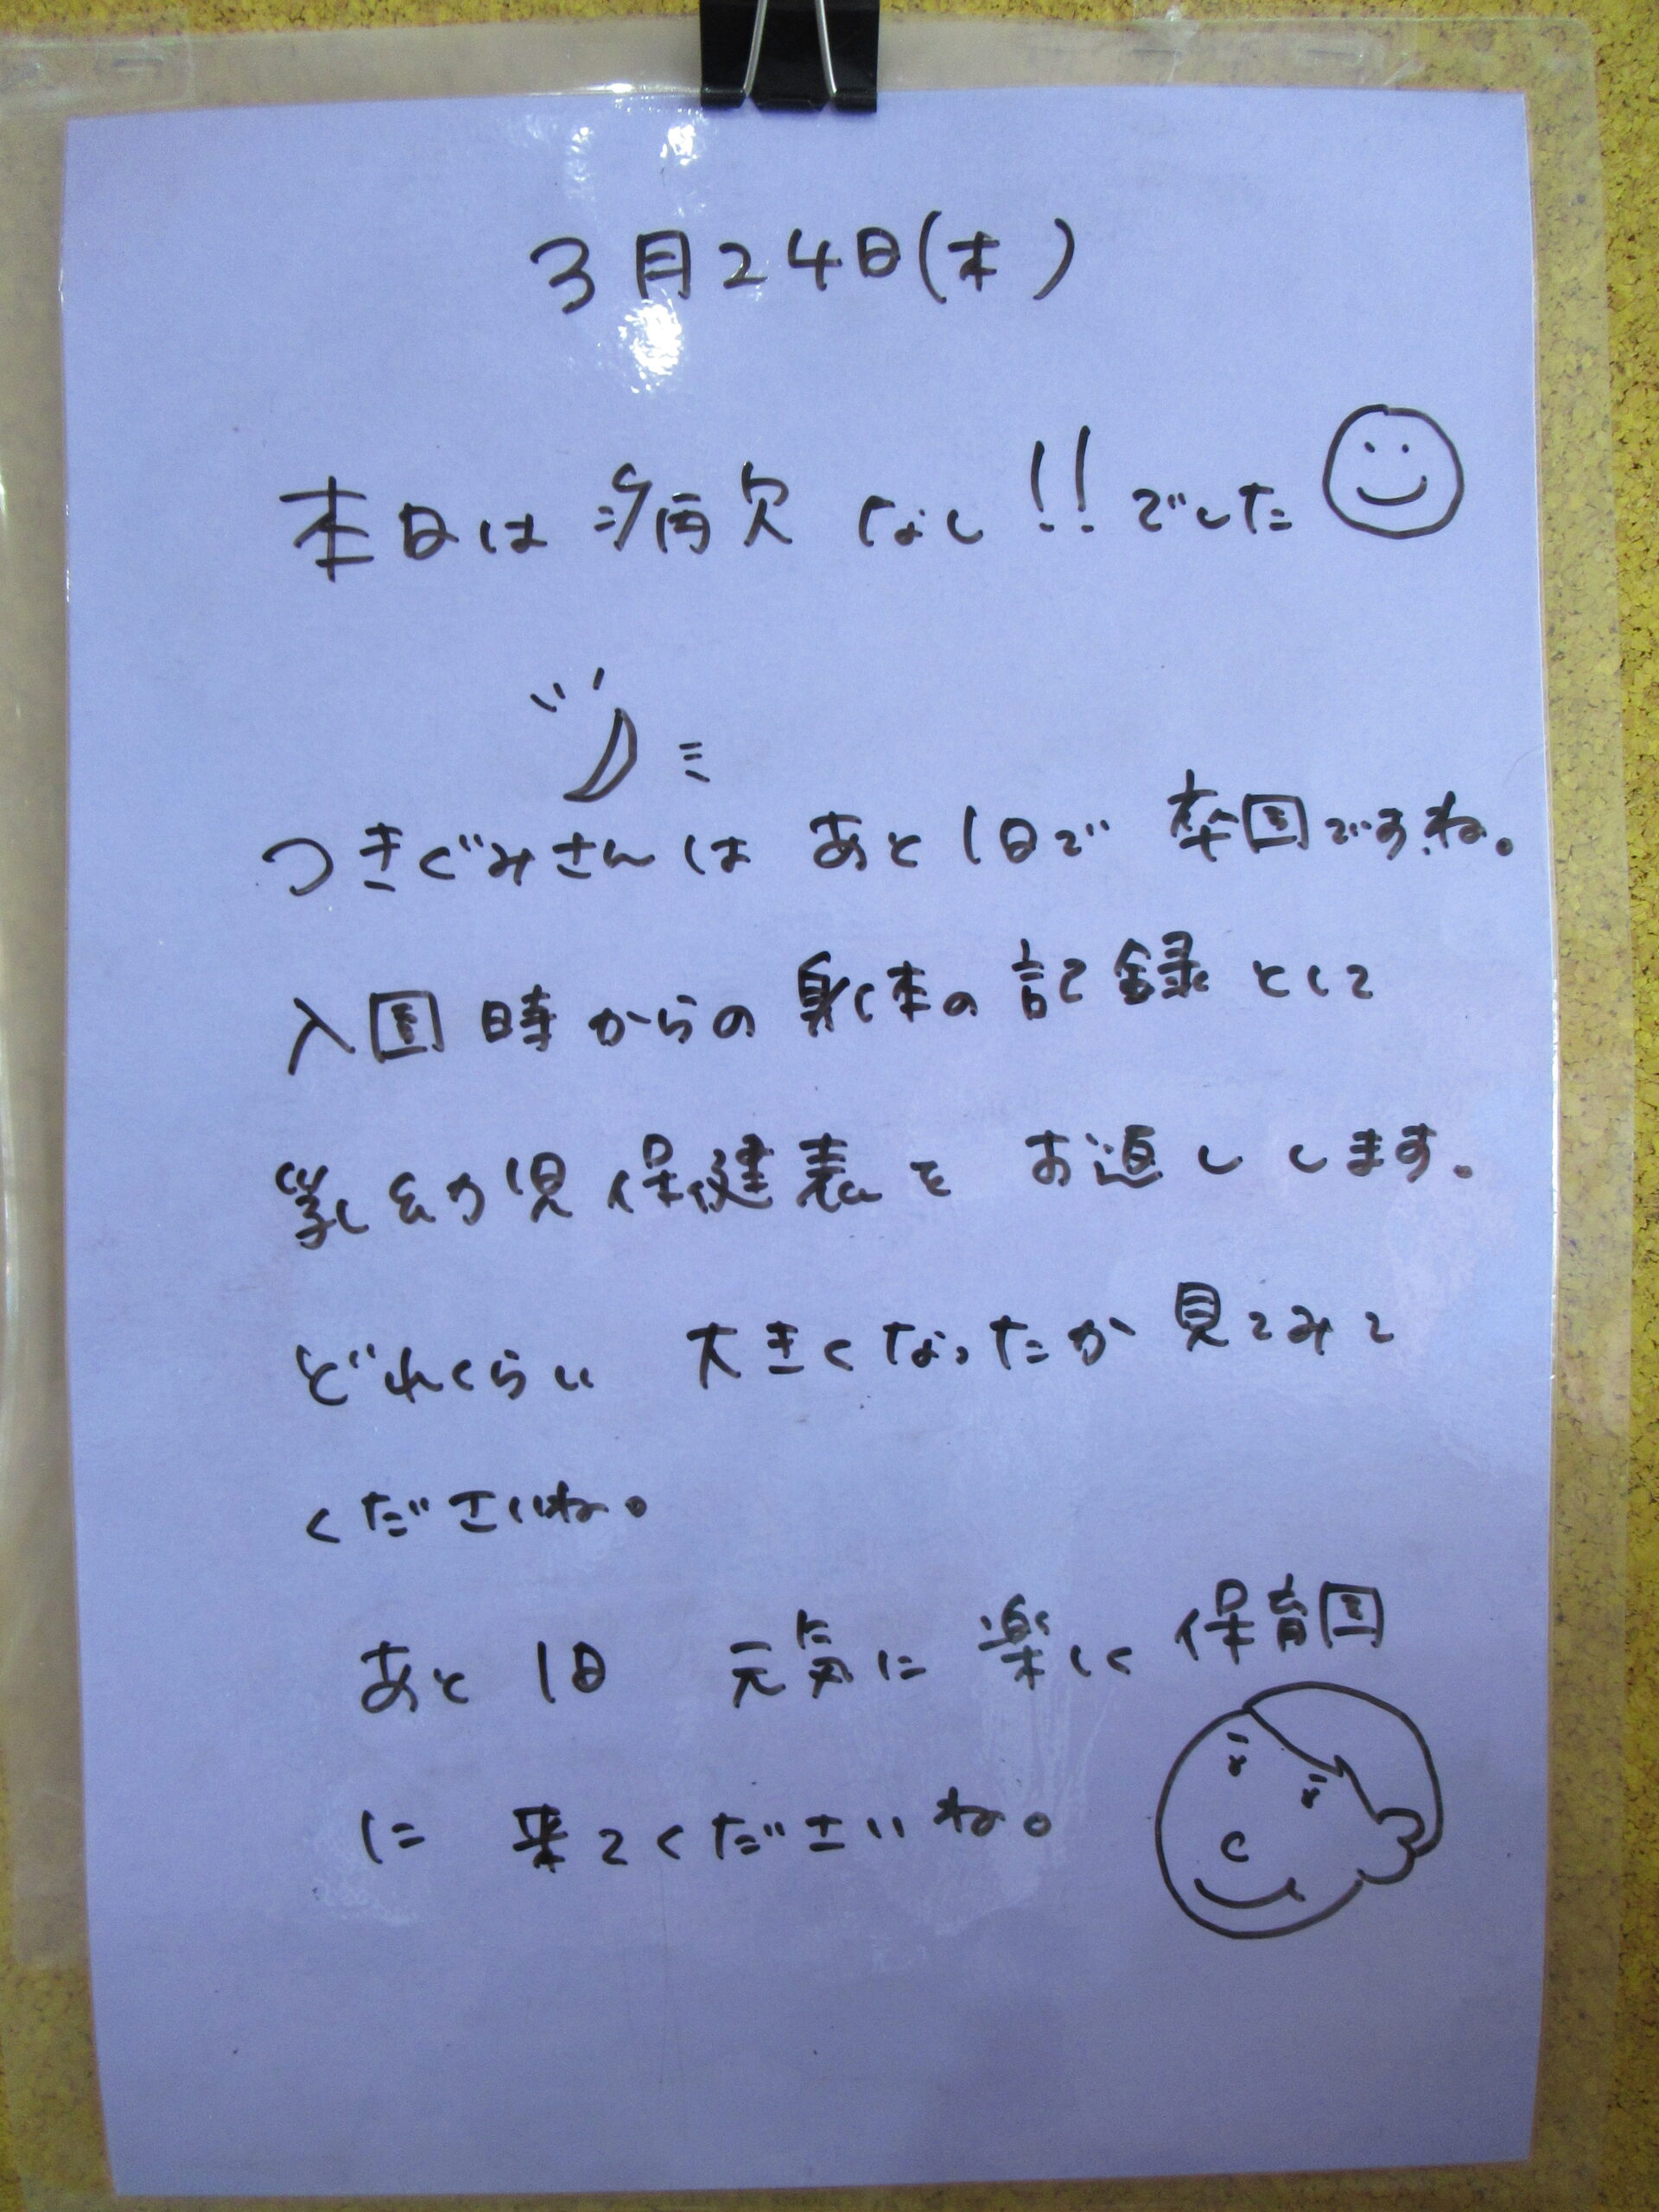 3月24日(木)
本日は 病欠 なし!!でした
つきぐみさんは あと1日で 卒園ですね。
入園時からの身体の記録として
乳幼児保健表を お返しします。
どれくらい 大きくなったか見てみて
くださいね。
あと1日 元気に楽しく保育園
に 来てくださいね。